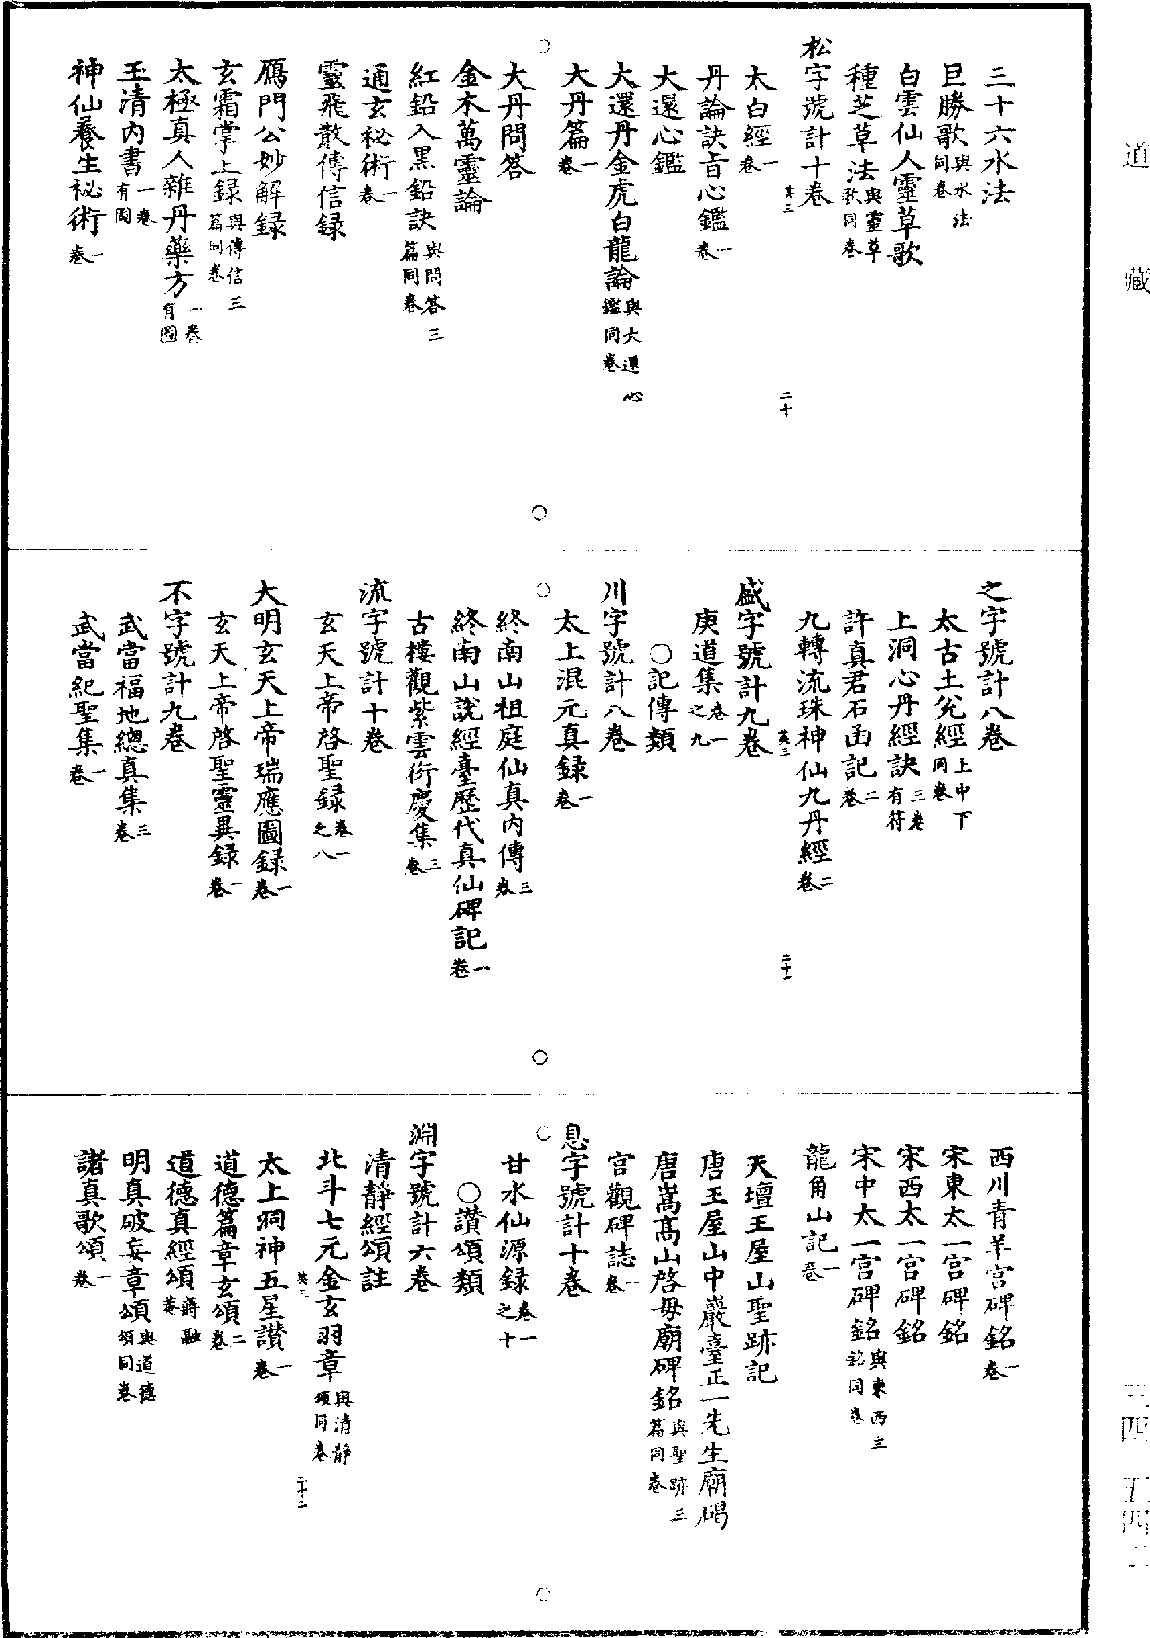 道藏
三十六水法
巨勝歌與水法同卷
白雲仙人靈草歌
種芝草法與靈草歌同卷
松字號計十卷
英三 二十
太白經一卷
丹論訣旨心鑑一卷
大還心鑑
大還丹金虎白龍論與大還心鑑同卷
大丹篇一卷
大丹問答
金木萬靈論
紅鉛入黑鉛訣與問答三篇同卷
通玄祕術一卷
靈飛散傳信録
鴈門公妙解録
玄霜掌上録與傳信三篇同卷
太極真人雜丹藥方一卷有圖
玉清內書一卷有圖
神仙養生祕術一卷
之字號計八卷
太古土兌經上中下同卷
上洞心丹經訣三卷有符
許真君石函記二卷
九轉流珠神仙九丹經二卷
英三 二十一
盛字號計九卷
庚道集卷一之九
○記傳類
川字號計八卷
太上混元真録一卷
終南山祖庭仙真內傳三卷
終南山說經臺歷代真仙碑記一卷
古樓觀紫雲衍慶集三卷
流字號計十卷
玄天上帝啓聖録卷一之八
大明玄天上帝瑞應圖録一卷
玄天上帝啓聖靈異録一卷
不字號計九卷
武當福地總真集三卷
武當紀聖集一卷
西川青羊宮碑銘一卷
宋東太一宮碑銘
宋西太一宮碑銘
宋中太一宮碑銘與東西三銘同卷
龍角山記一卷
天壇王屋山聖跡記
唐王屋山中巖臺正一先生廟碣
唐嵩高山啓母廟碑銘與聖跡三篇同卷
宮觀碑誌一卷
息字號計十卷
甘水仙源録卷一之十
○讚頌類
淵字號計六卷
清靜經頌註
北斗七元金玄羽章與清靜頌同卷
英三 二十二
太上洞神五星讚一卷
道德篇章玄頌二卷
道德真經頌蔣融菴
明真破妄章頌與道德頌同卷
諸真歌頌一卷